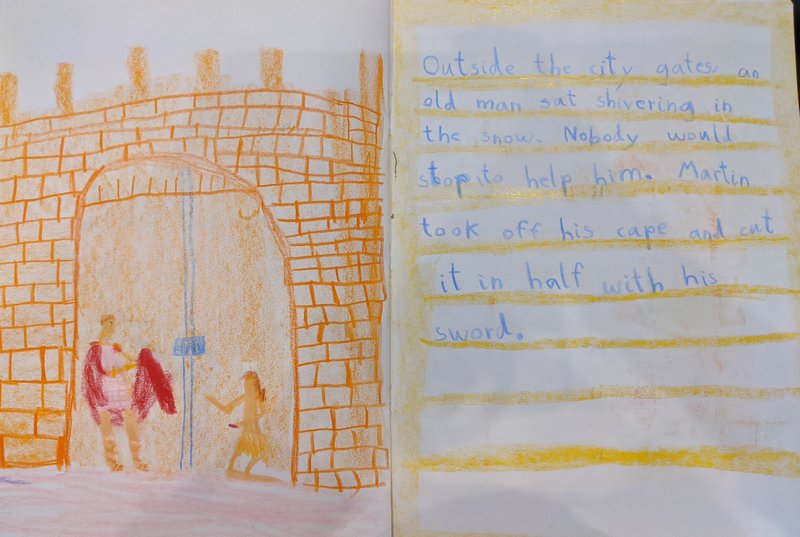 Outside the city gates, an
old man sat shivering in
the snow. Nobody would
stop to help him. Martin
took off his cape and cut
it in half with his
sword.